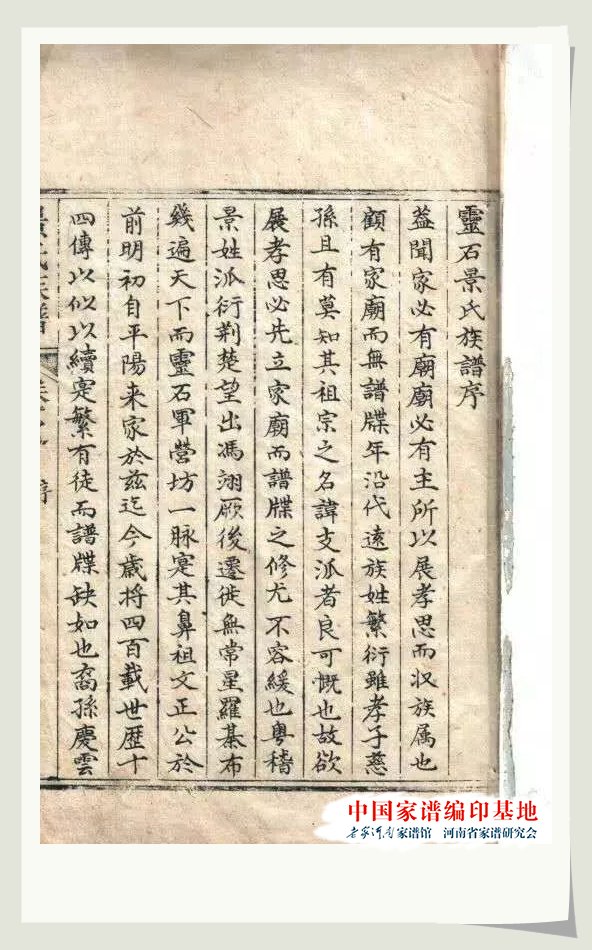 靈石景氏族譜序
葢聞家必有廟廟必有主所以展孝思而収族属也
顧有家廟而無譜牒年沿代遠族姓繁衍雖孝子慈
孫且有莫知其祖宗之名諱支派者良可慨也故欲
展孝思必先立家廟而譜牒之修尤不容緩也粤稽
景姓派衍荆楚望出馮翊厥後遷徙無常星羅棊布
幾遍天下而靈石軍營坊一脉寔其鼻祖文正公於
前明初自平陽来家於兹迄今歳将四百載世歴十
四傳以似以續寔繁有徒而譜牒缺如也裔孫慶雲
景氏族譜
中国家谱编印基地
老家河南家谱馆 河南省家谱研究会